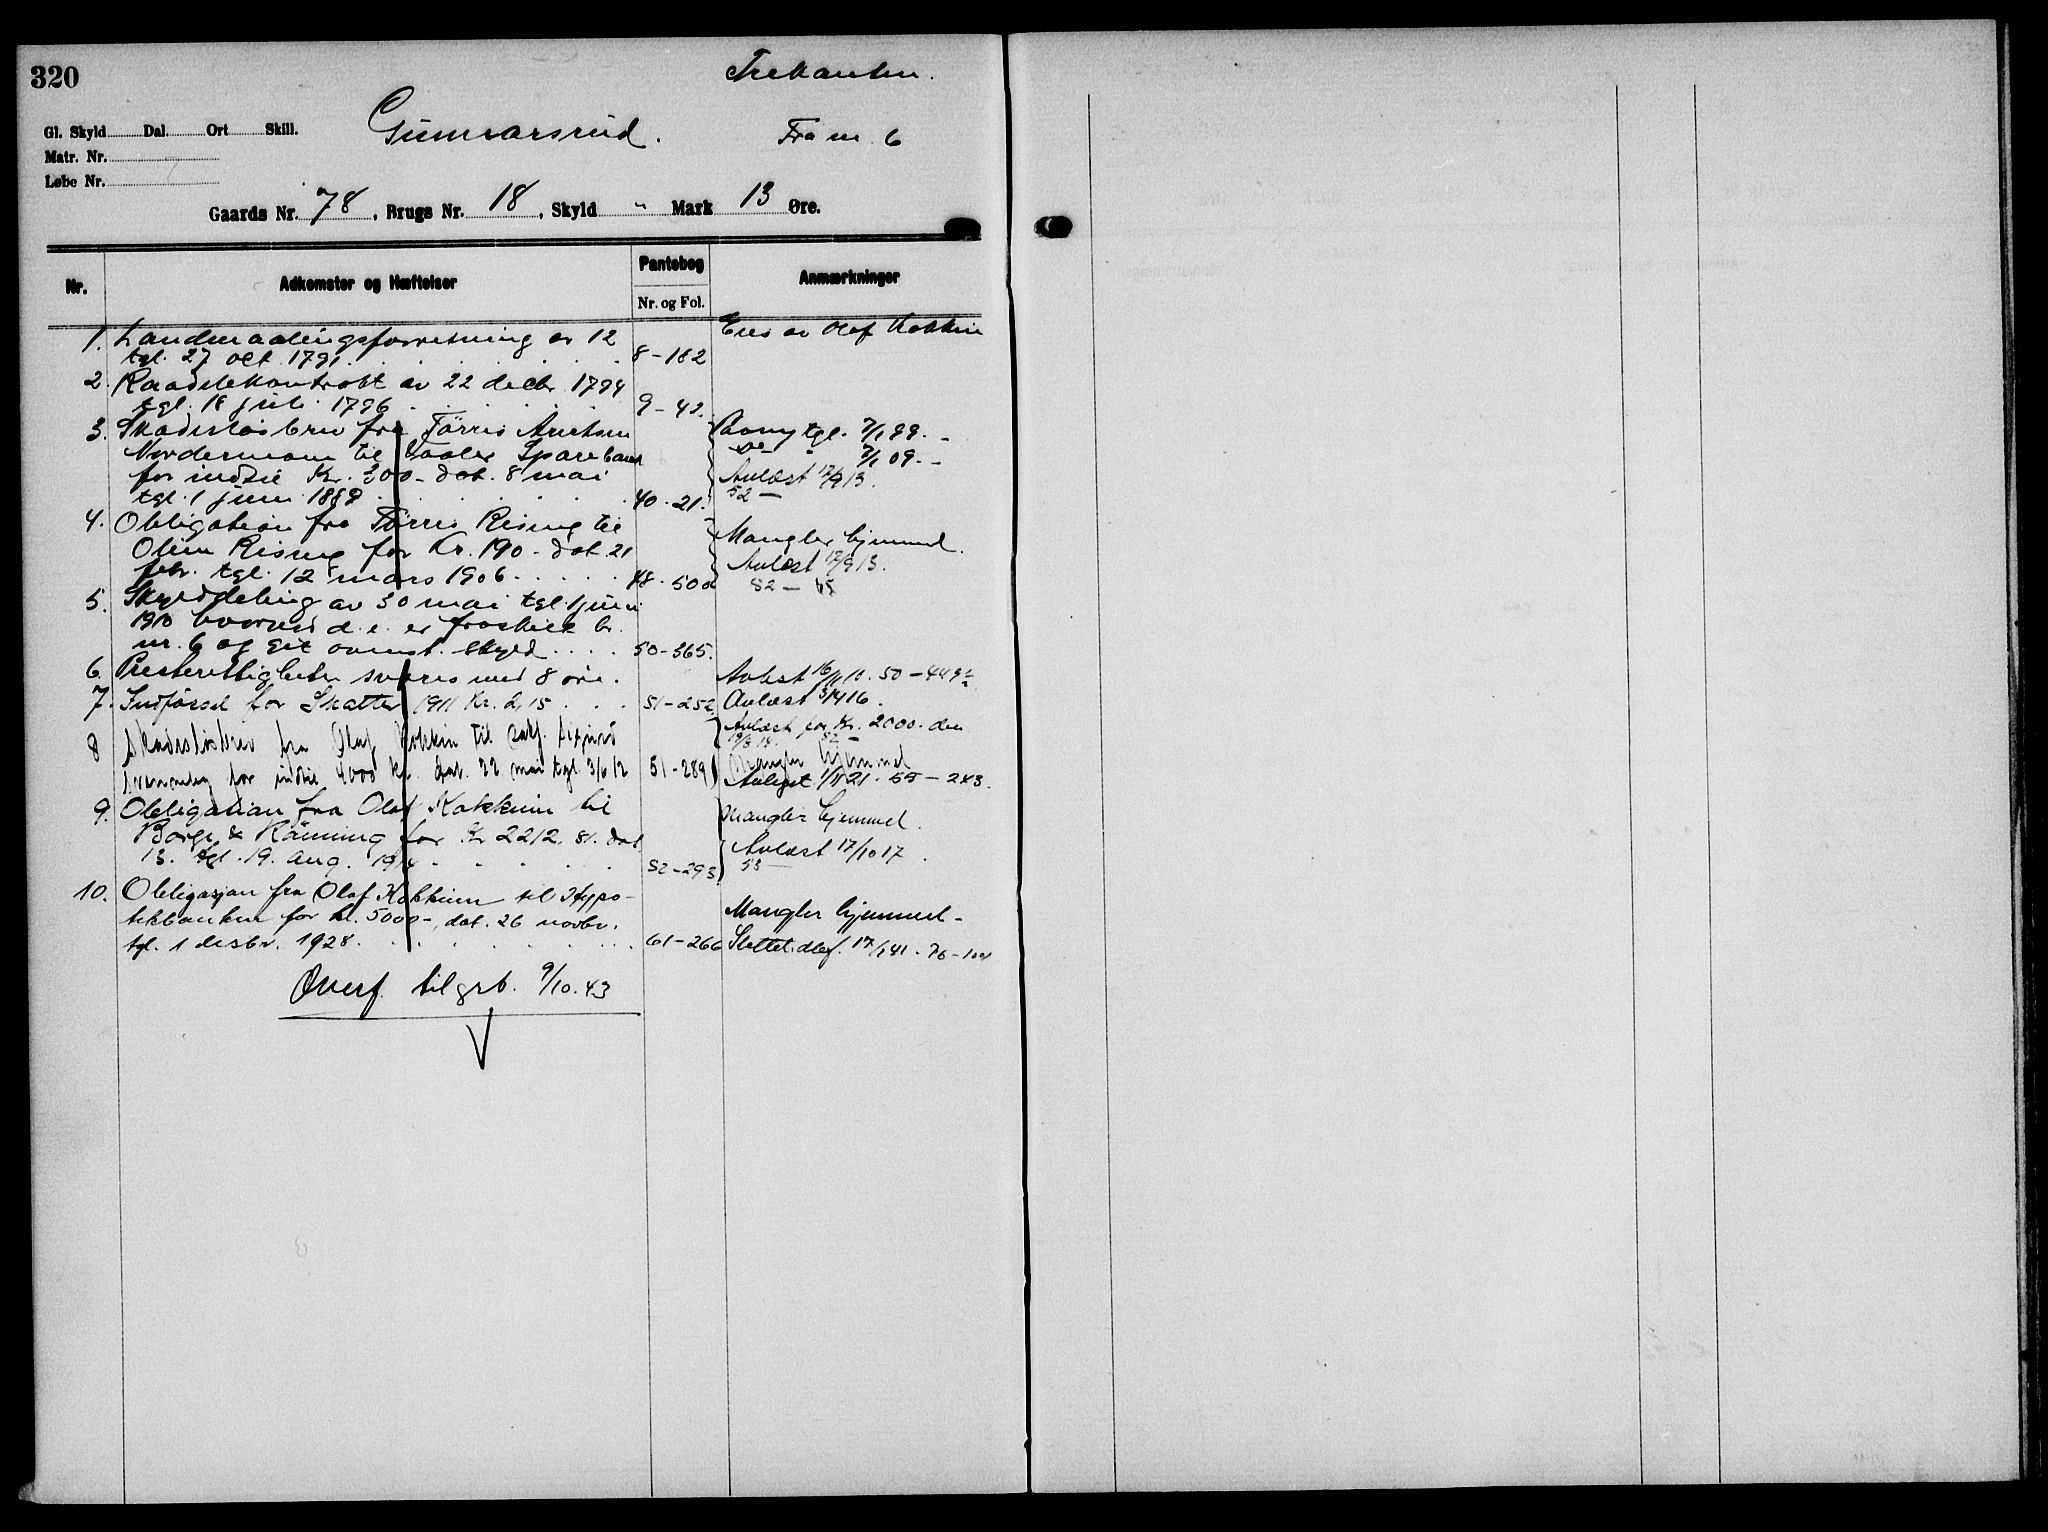 320
Trekanten.
Gl. Skyld Dal. Ort Skill.
Gunnarsrud.
Fra nr. 6
Matr. Nr.
Løbe Nr.
Gaards Nr. 78, Brugs Nr. 18, Skyld " Mark 13 Øre.
Nr. Adkomster og Hæftelser Pantebog Nr. og Fol. Anmærkninger
Eies av Olaf Kokkin
1. Landmaalingsforretning av 12
tgl. 27 oct. 1791. 8-182
2. Raadelekontrakt av 22 decbr. 1794
tgl. 18 juli 1796 9-42.
3. Skadesløsbrev fra Tørris Arntsen
Nordermoen til Vaaler Sparebank
for indtil Kr. 300- dat. 8 mai
tgl. 1 juni 1889 40-21.
Paany tgl. 7/1 99. -
Do - " 7/1 09. -
Avlæst 17/9 13.
52 -
4. Obligation fra Tørris Rising til
Oline Rising for Kr. 190- dat. 21
febr. tgl. 12 mars 1906 48-500
Mangler hjemmel.
Avlæst 17/9 13.
52 -
5. Skylddeling av 30 mai tgl. 1 juni
1910 hvorved d. e. er fraskilt br.
nr. 6 og git ovenst. skyld 50-365.
6. Presterettigheten svares med 8 øre.
Avløst 16/11 10. 50-449
7. Indførsel for Skatter 1911 Kr. 2,15 51-252
Avlæst 3/4 16.
8 Skadesløsbrev fra Olaf Kokkin til
for indtil 4000 Kr. dat. 22 mai tgl. 3/6 12 51-289
Avlæst for Kr. 2000. den
Mangler hjemmel
Avlyst 1/11 21. 55-243.
9. Obligasion fra Olaf Kokkin til
Borge & Rönning for Kr 2212,81. dat
13. tgl. 19. aug. 1914 52-293
Mangler hjemmel.
Avlæst 17/10 17.
53
10. Obligasjon fra Olaf Kokkinn til Hypo-
tekbanken for kr. 5000-, dat. 26 novbr.
tgl. 1 desbr. 1928. 61-266
Mangler hjemmel -
Slettet dbf. 17/1 41. 76-
Overf. til grb. 9/10.43